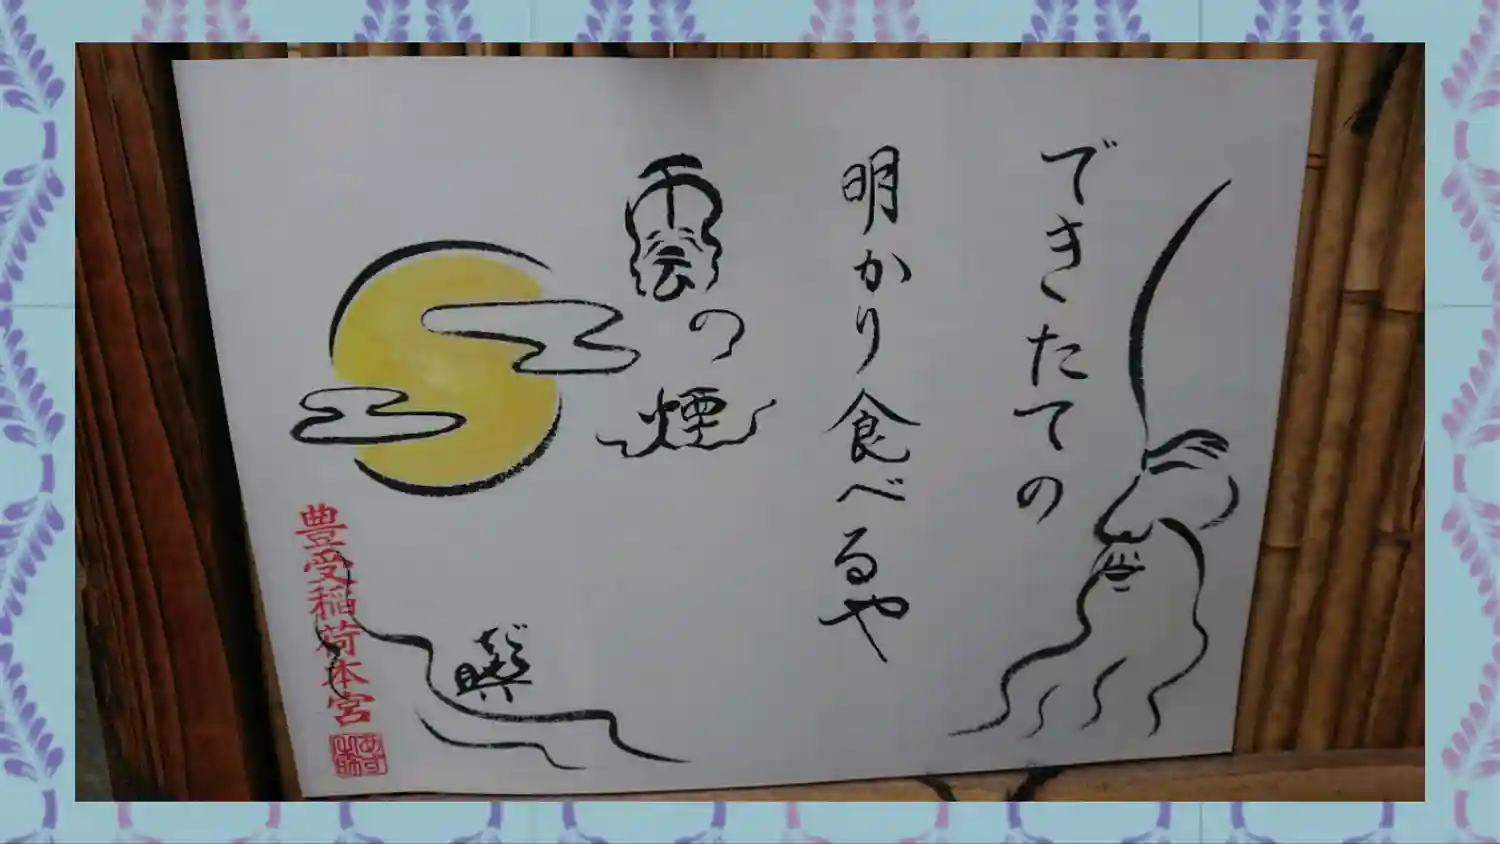 できたての
明かり食べるや
雲の煙
豊受稲荷本宮